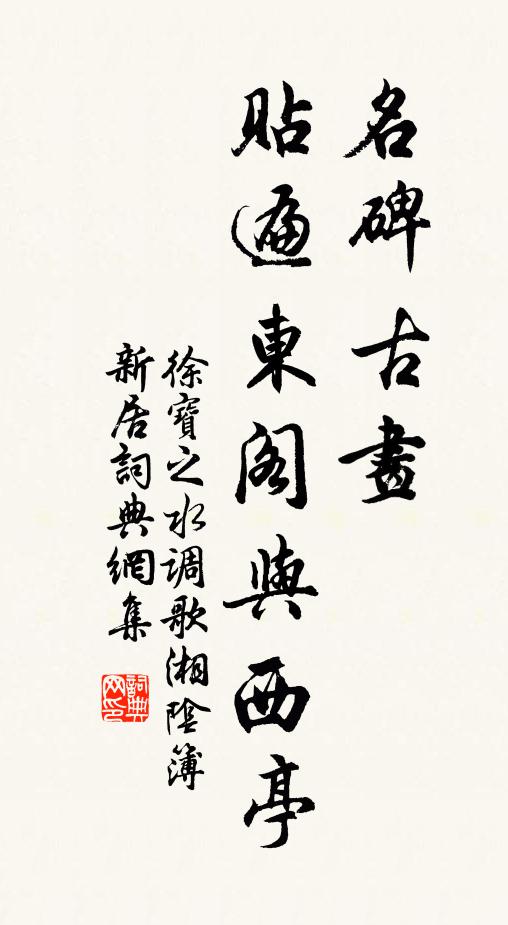 名碑古畫
貼遍東閣與西亭
徐寶之水调歌湘陰簿
新居詞典網集
詞典网印